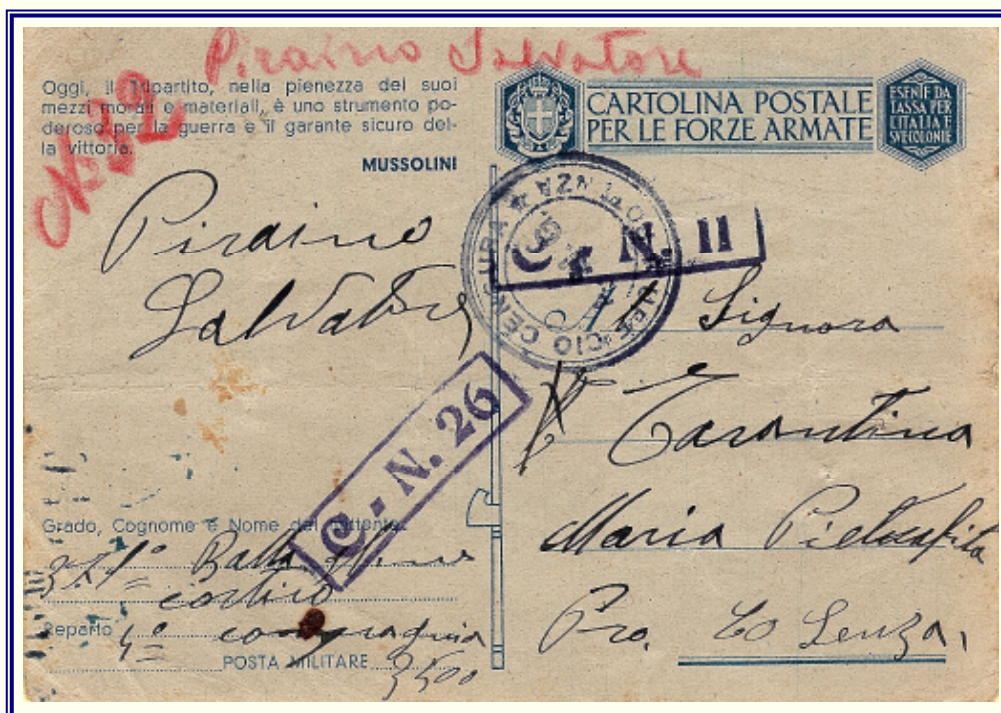 Piraino Salvatore
Oggi, il Tripartito, nella pienezza dei suoi
mezzi morali e materiali, è uno strumento po-
deroso per la guerra e il garante sicuro del-
la vittoria.
MUSSOLINI
CARTOLINA POSTALE
PER LE FORZE ARMATE
ESENTE DA
TASSA PER
L'ITALIA E
SUE COLONIE
Piraino
Salvatore
UFFICIO CENSURA
N. 11
C - N. 26
Signora
Tarantino
Maria Pietrafita
Pro. Cosenza,
Grado, Cognome e Nome del mittente
Batta
costiero
Reparto 4° compagnia
POSTA MILITARE 3500